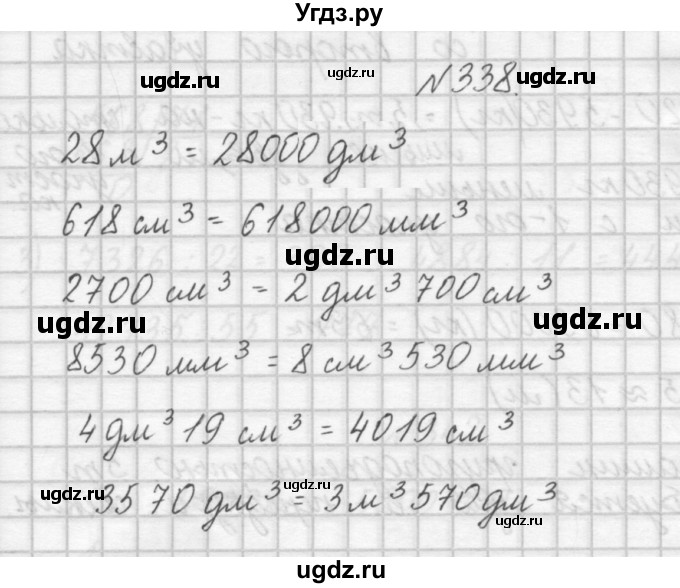 Угдз.ру
ugdz.ru ugdz.ru ugdz.ru
№338.
28 м³ = 28000 дм³
618 см³ = 618000 мм³
ugdz.ru
2700 см³ = 2 дм³ 700 см³
ugdz.ru ugdz.ru
8530 мм³ = 8 см³ 530 мм³
4 дм³ 19 см³ = 4019 см³
ugdz.ru ugdz.ru ugdz.ru
3570 дм³ = 3 м³ 570 дм³
ugdz.ru ugdz.ru